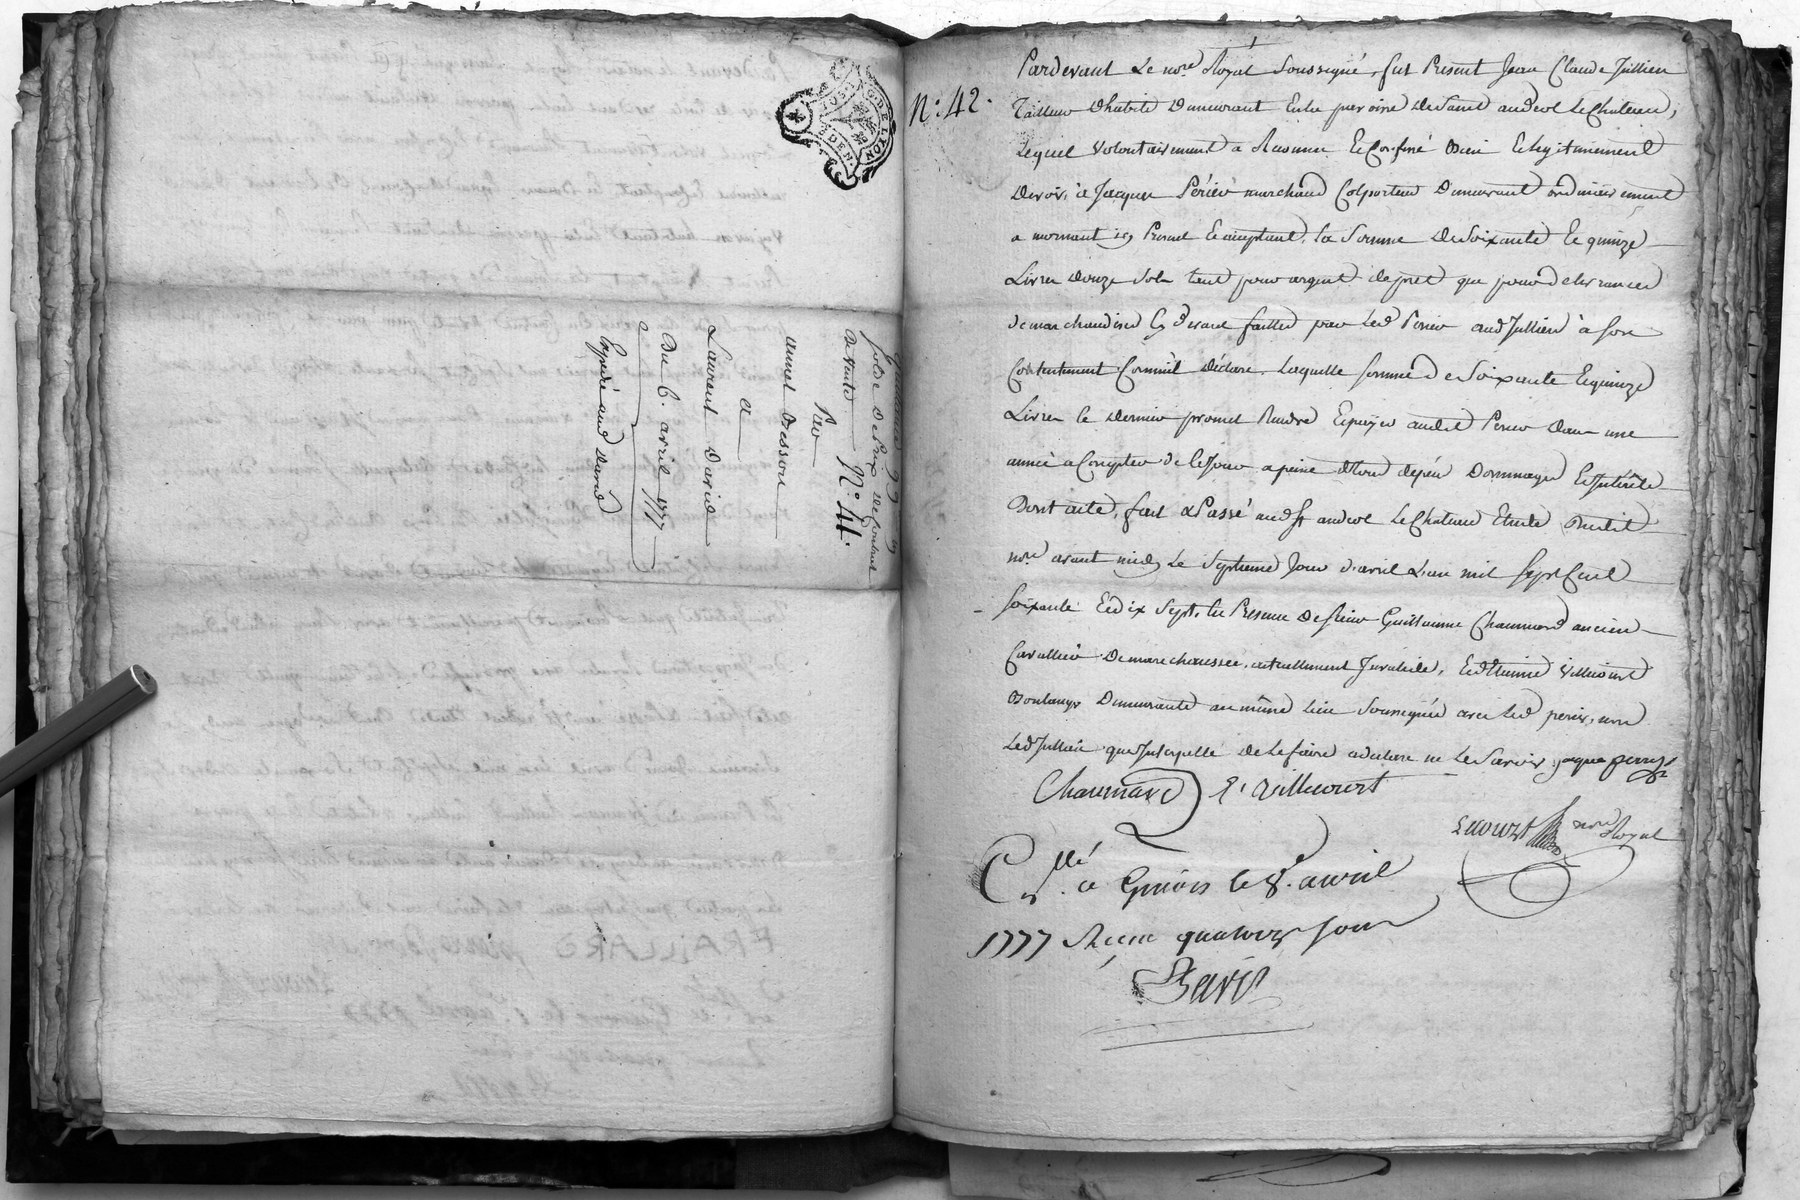 GDE LYON
DEN.
Quittance
solde de prix de contract
de vente N.º 41.
Par
annet Besson
a
Laurent Darud
Du 6. avril 1777
Expédié aud Darud
N.º 42.
Pardevant Le no.re Royal Soussigné, fut Present Jean Claude Jullien
Tailleur Dhabits Demeurant En la paroisse De Saint andeol Le Chateau,
Lequel volontairement a Reconnu Et Confessé Bien Et legitimement
Devoir, à Jacques Périer marchand Colporteur Demeurant ordinairement
a mornant icy Present Et acceptant, La Somme De Soixante Et quinze
Livres Douze Sols tant pour argent de pret que pour delivrances
de marchandises Cy devant faittes par Led Perier aud Jullien à Son
Contentement Comm'il Declare. Laquelle somme de Soixante Et quinze
Livres le Dernier promet Rendre Et payer audit Perier Dans une
année a Compter de Ce Jour a peine de tous depens Dommages Et Interets
Dont acte, fait & Passé aud St andeol Le Chateau Etude Dudit
no.re avant midy Le Septieme Jour d'avril L'an mil Sept Cent
Soixante Et dix Sept, En Presence De Sieur Guillaume Chaumard ancien
Cavallier De marechaussée, actuellement Invalide, Et Etienne Villecourt
Boulanger Demeurants au même lieu Soussignés avec Led perier, non
Led Jullien que Interpellé De Le faire a declaré ne Le Savoir, jaque perryé
Chaumard E. Villecourt
no.re Royal
C.llé a Givors le 8.e avril
1777 Reçu quatorze sous